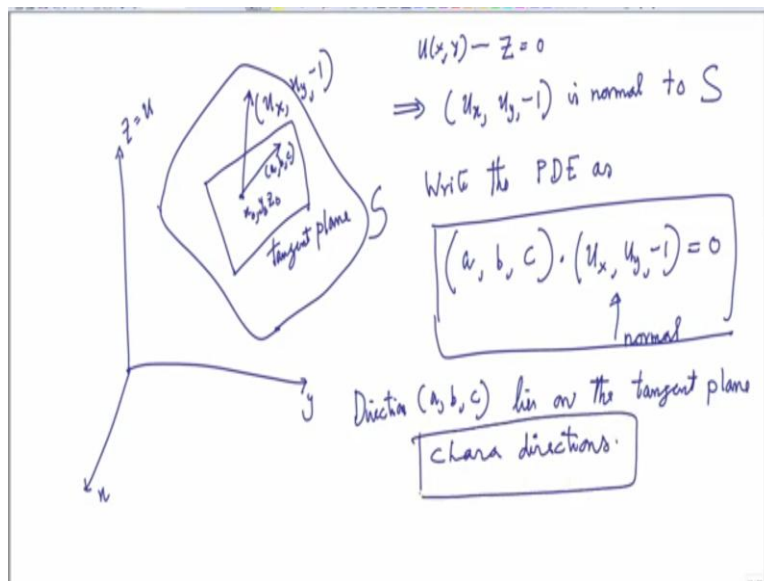 Z=u
(u_x, u_y, -1)
(a,b,c)
x_0, y_0, z_0
tangent plane
S
y
x
u(x,y) - Z = 0
⇒ (u_x, u_y, -1) is normal to S
Write the PDE as
(a, b, c) · (u_x, u_y, -1) = 0
normal
Direction (a, b, c) lies on the tangent plane
chara directions.